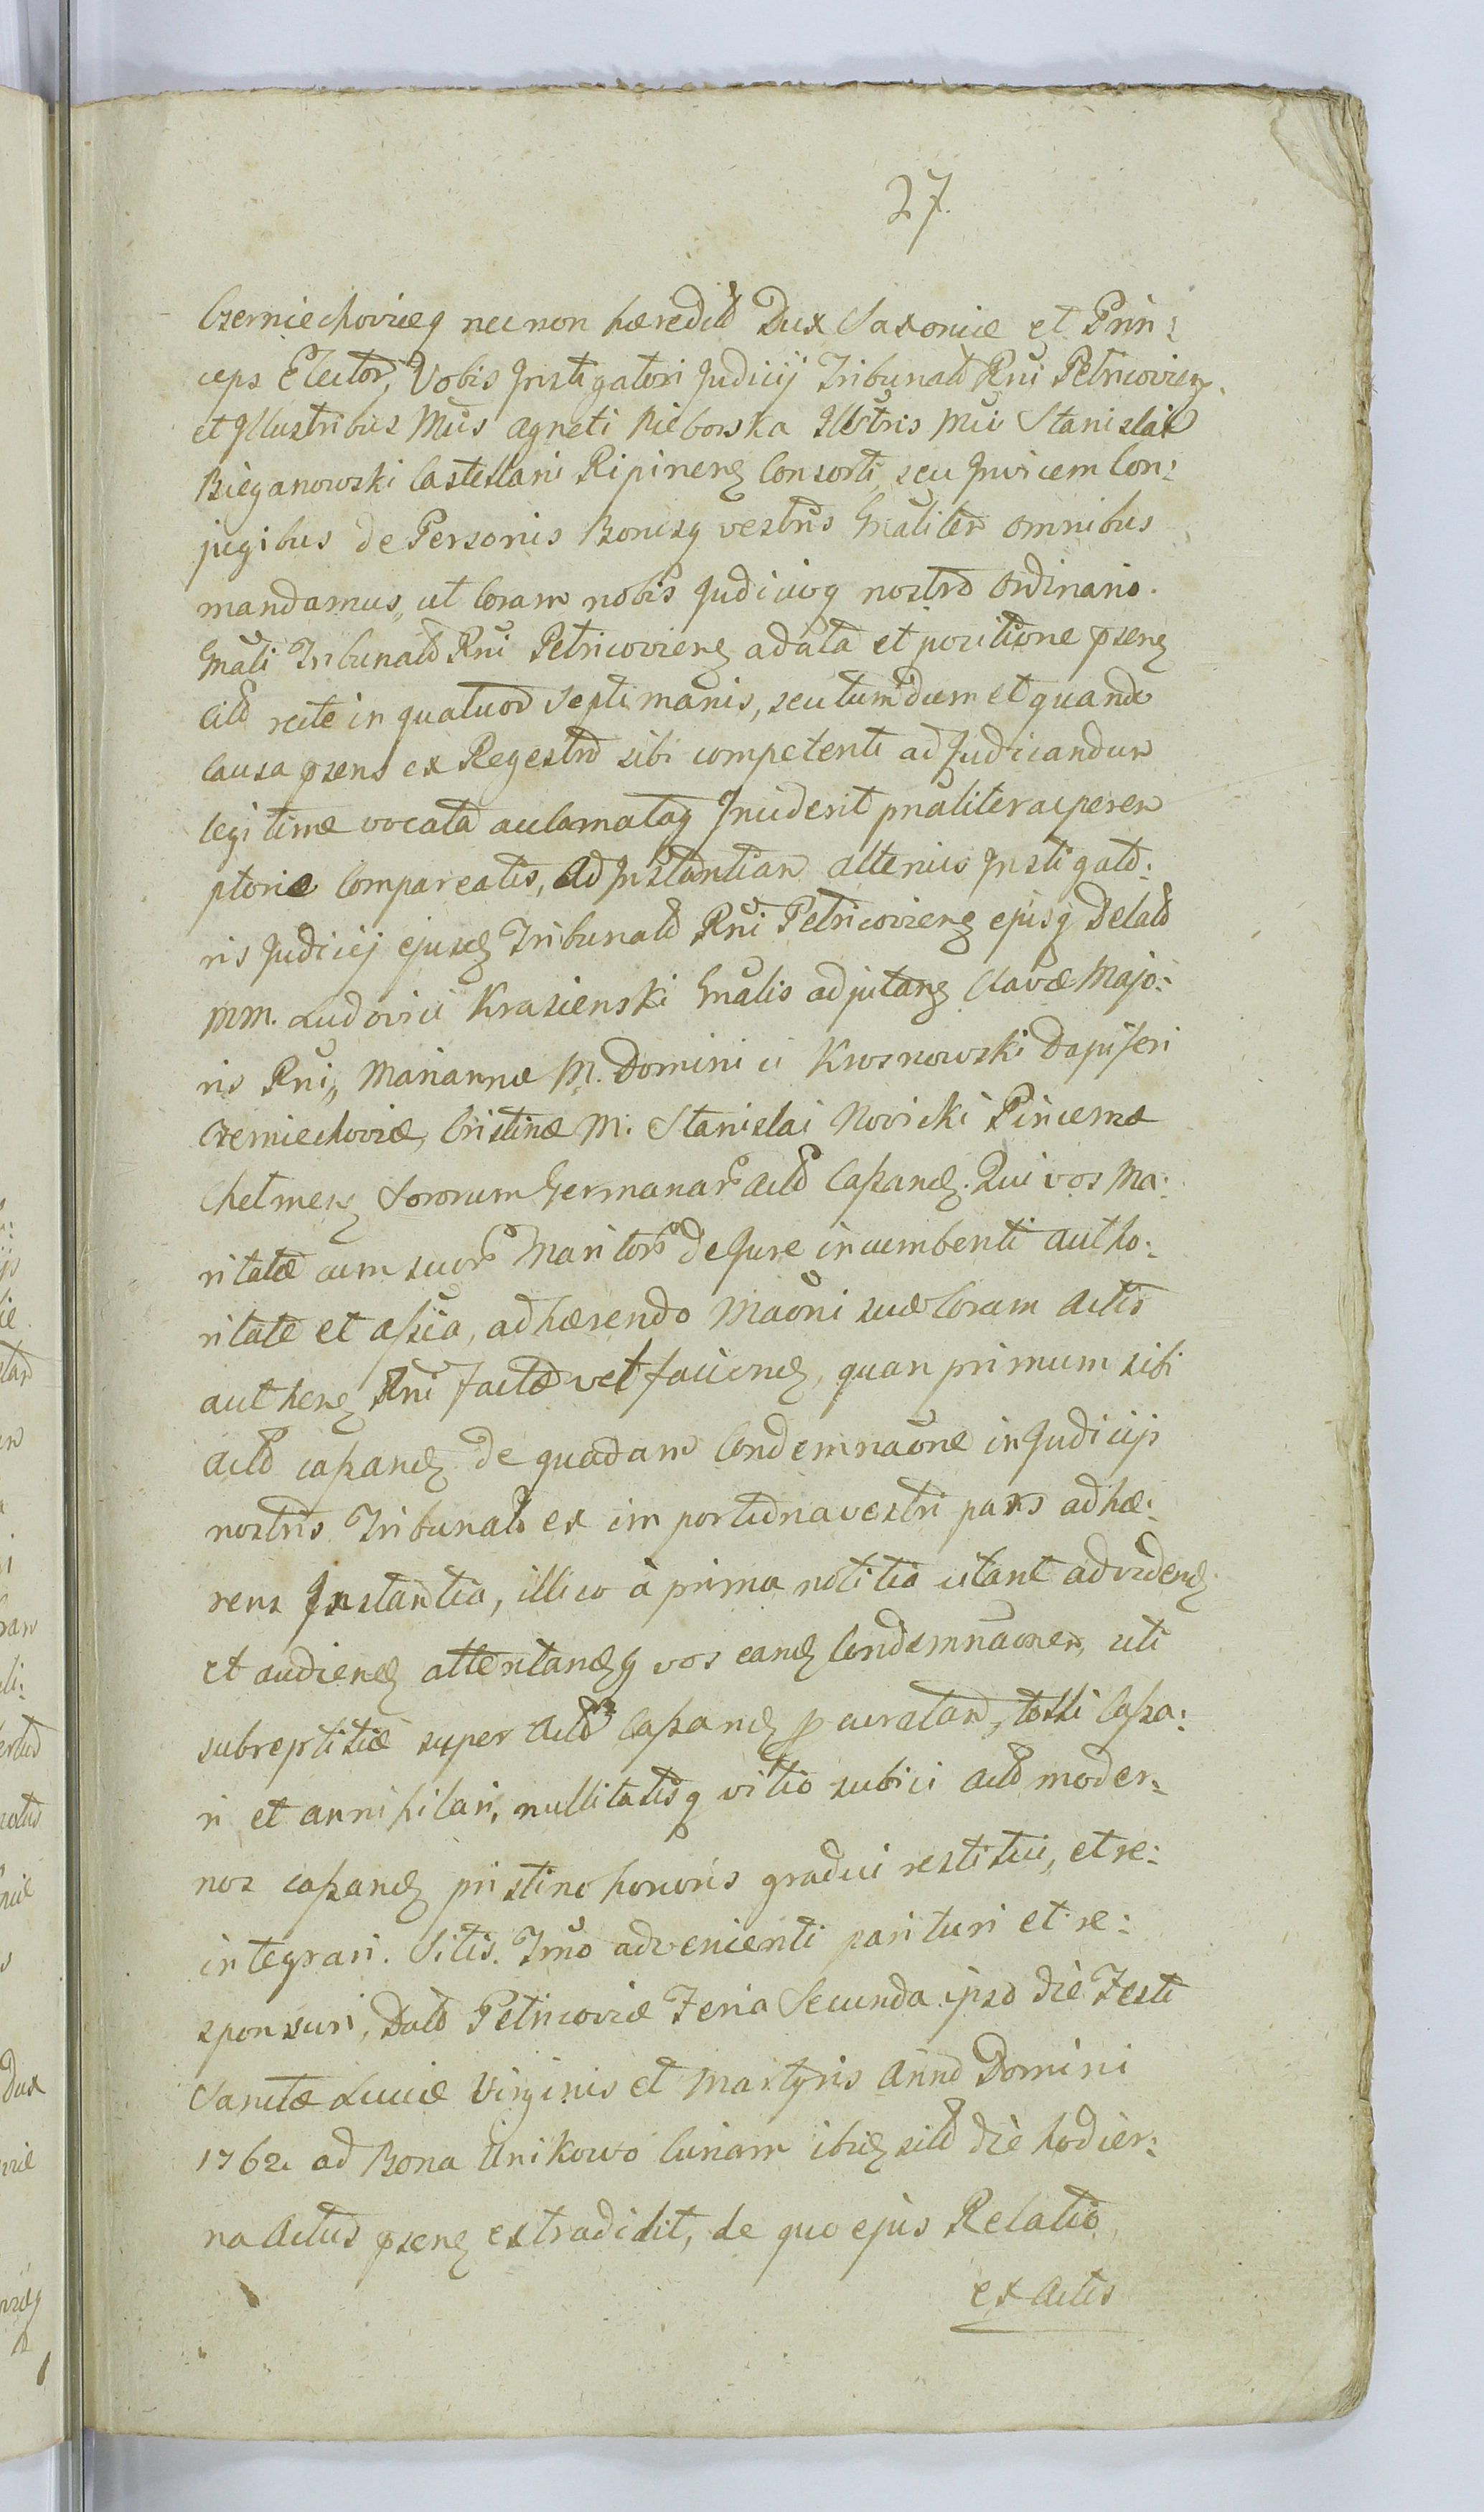 27.
Czerniechoviæq necnon hæredit Dux Saxoniæ et Prin:
ceps Elector, Vobis Instigatori Judicij Tribunal Rni Petricovien.
et Illustribus Mcis Agneti Nieborska Illustris Mci Stanislai
Bieganowski Castellani Ripinen Consorti, seu Invicem Con:
jugibus de Personis Bonisq vestris Gnaliter omnibus
mandamus, ut Coram nobis Judicioq nostro Ordinario.
Gnali Tribunal Rni Petricovien a data et positione psen
Cit recte in quatuor Septimanis, seu tum dum et quando
Causa psens ex Regestro sibi competenti ad Judicandum
legitime vocata acclamataq Inciderit pnaliter ac perem
ptorie Compareatis, Ad Instantiam alterius Instigato:
ris Judicij ejusd Tribunal Rni Petricovien ejusq Delat
MM. Ludovici Krasienski Gnalis adjutan Clavæ Majo:
ris Rni, Mariannæ M. Dominici Krosnowski Dapiferi
Czerniechoviæ, Cristinæ M. Stanislai Novicki Pincernæ
Chelmen Sororum Germanar Act Cassand. Qui vos Ma:
ritatæ cum suor Maritor de Jure incumbenti autho:
ritate et assia, adhærendo Maoni suæ Coram Actis
authen Rni factæ vel faciend, quam primum sibi
Act cassand de quadam Condemnaone in Judicijs
nostris Tribunal ex importuna vestri pars adhæ:
rens Instantia, illico à prima notitia citant ad vidend
et audiend attentandq vos eand Condemnaonem, uti
subreptitiæ super Act Cassand p curatam, tolli Cassa:
ri et annihilari, nullitatisq vitio subici Act moder:
nos cassand pristino honoris gradui restitui, et re:
integrari. Sitis. Tmo advenienti parituri et re:
sponsuri, Dat Petricoviæ Feria Secunda ipso die Festi
Sanctæ Luciæ Virginis et Martyris Anno Domini
1762 ad Bona Unikowo Curiam ibid sit die hodier:
na Actus psen extradidit, de quo ejus Relatio
ex Actis